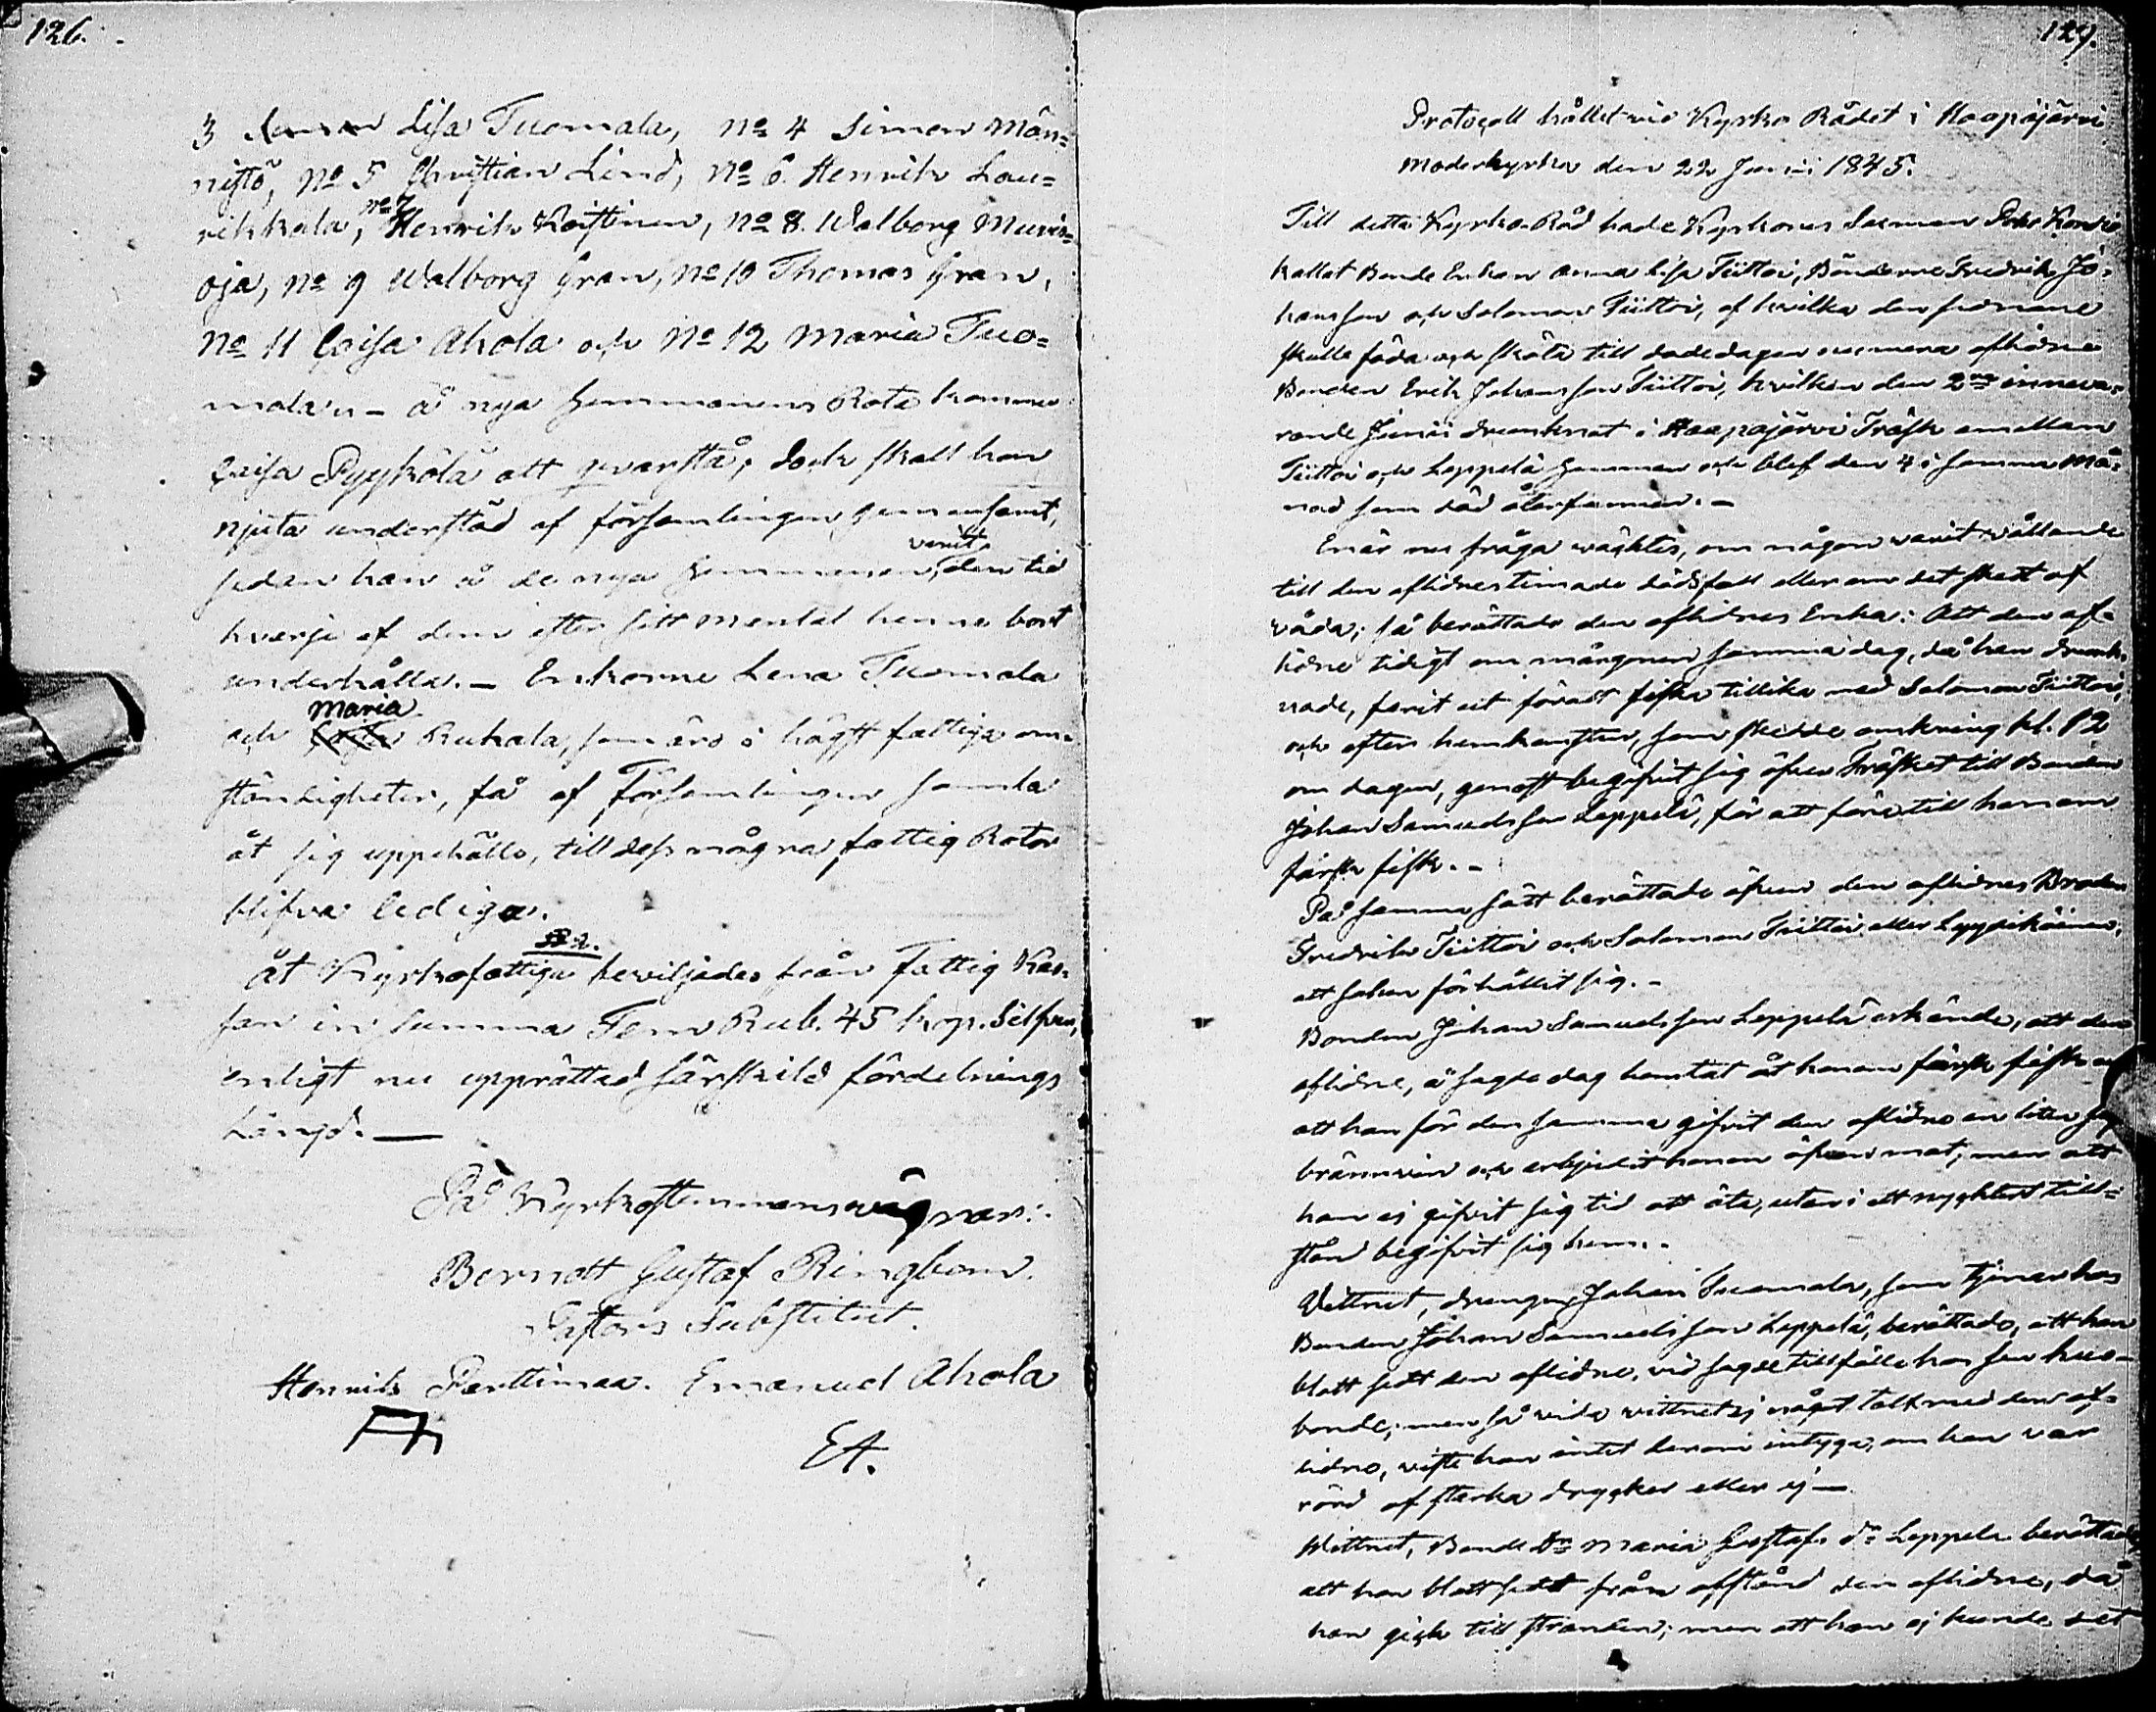 126.
3 Lisa Tuomala, No 4 Simon Män=
nistö, No 5 Christian Lind, No 6. Henrik Lau=
rikkala, No 7 Henrik Koistinen, No 8. Walborg Muris=
oja, No 9 Walborg Gran, No 10 Thomas Gran,
No 11 Caisa Ahola och No 12 Maria Tuo=
mala. – å nya Hemmanens Rota kommer
Caisa Pyykölä att qvarstå, dock skall hon
njuta understöd af församlingen gemensamt,
sedan hon å de nya Hemmanen varit den tid
hvarje af dem efter sitt mental henne bort
underhålla. – Enkorne Lena Tuomala
och Maria Ruhala, som äro i högst fattiga om=
ständigheter, få af Församlingen samla
åt sig uppehälle, till dess någre fattig Rotor
blifva lediga.
§ 2.
Åt Kyrkofattiga beviljades från Fattig Kas=
san in summa Fem Rub. 45 kop. Silfver,
enligt nu upprättad särskild fördelnings
Längd. —
På Kyrkostemmans vägnar:
Berndt Gustaf Ringbom.
Pastors Substitut.
Henrik Perttunen. Emanuel Ahola
EA.
129.
Protocoll hållet vid Kyrko Rådet i Haapajärvi
Moderkyrka den 22 Junii 1845.
Till detta Kyrko-Råd hade Kyrkones Sexman Peter
kallat Bonde Enkan Anna Lisa Tiittoi, Bönderne Fredrik Jo=
hansson och Salomon Tiittoi, af hvilka den sednare
skulle föda och sköta till dödedagen nu mera aflidne
Bonden Erik Johansson Tiittoi, hvilken den 2dre inneva=
rande Junii drunknat i Haapajärvi Träsk emellan
Tiittoi och Leppelä Hemman och blef den 4 i samma Må=
nad som död återfunnen. –
Enär nu fråga väcktes, om någon varit vållande
till den aflidnes timade dödsfall eller om det skedt af
våda; så berättade den aflidnes Enka: Att den af=
lidne tidigt om morgonen samma dag, då han drunk=
nade, farit ut för att fiska tillika med Salomon Tiittoi,
och efter hemkomsten, som skedde omkring kl. 12
om dagen, genast begifvit sig öfver Träsket till Bonden
Johan Samuelsson Leppelä, för att föra till honom
färsk fisk. –
På samma sätt berättade äfven den aflidnes Broder
Fredrik Tiittoi och Salomon Tiittoi eller
att saken förhållit sig. –
Bonden Johan Samuelsson Leppelä erkände, att den
aflidne, å sagde dag hemtat åt honom färsk fisk
att han för densamma gifvit den aflidne en liten sup
brännvin och erbjudit honom äfven mat; men att
han ej gifvit sig tid att äta, utan i ett nyktert till=
stånd begifvit sig hem. –
Vittnet, drengen Johan Tuomala, som tjenar hos
Bonden Johan Samuelsson Leppelä, berättade, att han
blott sett den aflidne, vid sagde tillfälle hos sin hus=
bonde; men så vida vittnet ej något talt med den af=
lidne, viste han intet derom intyga, om han var
rörd af starka drycker eller ej –
Wittnet, Bonde Dr Maria Gustafs dr Leppelä berättade,
att hon blott sedt från afstånd den aflidne, då
han gick till stranden; men att hon ej kunde det